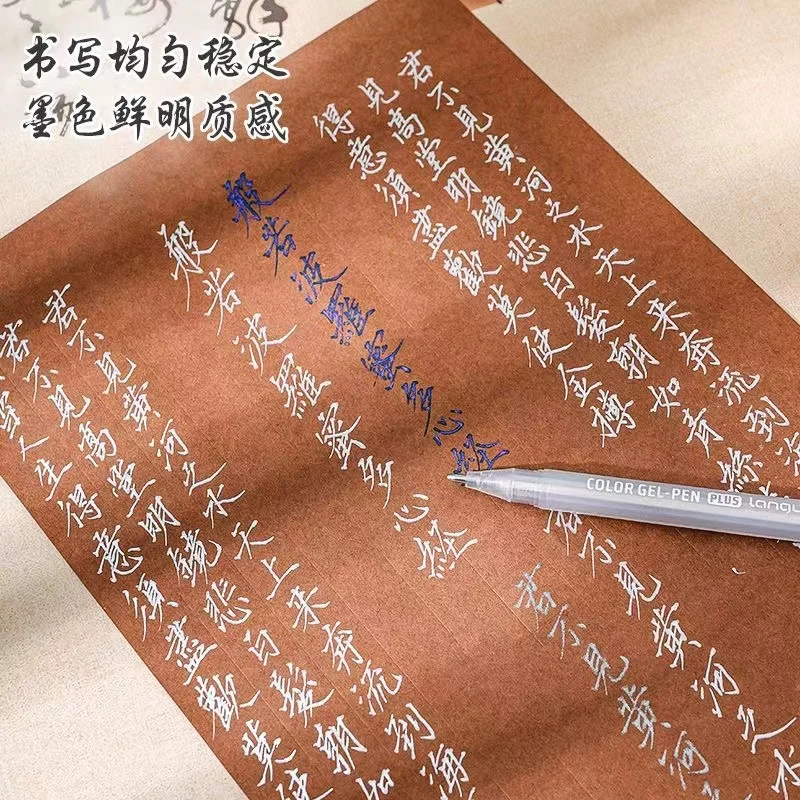 书写均匀稳定
墨色鲜明质感
君不見黄河之水天上来奔流到海
見高堂明鏡悲白髮朝如青絲
得意須盡歡莫使金樽
般若波羅蜜多心經
般若波羅蜜多心經
君不見黄河之水天上来奔流到海
君不見高堂明鏡悲白髮朝如
人生得意須盡歡莫使
COLOR GEL-PEN PLUS
不見黄河之水
君不見黄河之